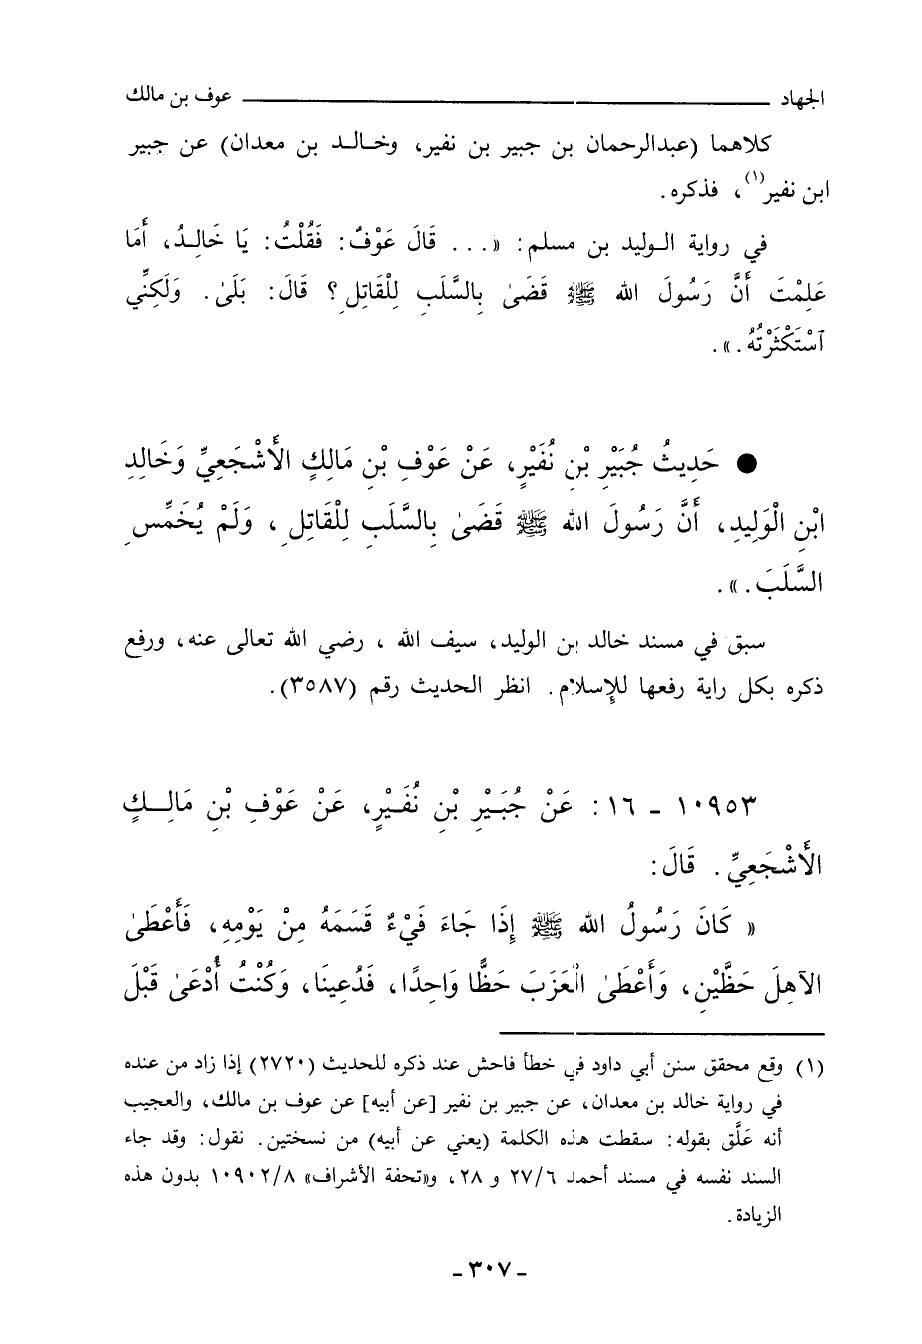 الجهاد ــــــــ عوف بن مالك
كلاهما (عبدالرحمان بن جبير بن نفير، وخالد بن معدان) عن جبير
ابن نفير(١)، فذكره.
في رواية الوليد بن مسلم: «... قَالَ عَوْفٌ: فَقُلْتُ: يَا خَالِدُ، أَمَا
عَلِمْتَ أَنَّ رَسُولَ الله ﷺ قَضَىٰ بِالسَّلَبِ لِلْقَاتِلِ؟ قَالَ: بَلَىٰ. وَلَكِنِّي
آسْتَكْثَرْتُهُ.».
● حَدِيثُ جُبَيْرِ بْنِ نُفَيْرٍ، عَنْ عَوْفِ بْنِ مَالِكٍ الأَشْجَعِيِّ وَخَالِدِ
ابْنِ الْوَلِيدِ، أَنَّ رَسُولَ الله ﷺ قَضَىٰ بِالسَّلَبِ لِلْقَاتِلِ، وَلَمْ يُخَمِّسِ
السَّلَبَ.».
سبق في مسند خالد بن الوليد، سيف الله، رضي الله تعالى عنه، ورفع
ذكره بكل راية رفعها للإسلام. انظر الحديث رقم (٣٥٨٧).
١٠٩٥٣ - ١٦: عَنْ جُبَيْرِ بْنِ نُفَيْرٍ، عَنْ عَوْفِ بْنِ مَالِكٍ
الأَشْجَعِيِّ. قَالَ:
« كَانَ رَسُولُ الله ﷺ إِذَا جَاءَ فَيْءٌ قَسَمَهُ مِنْ يَوْمِهِ، فَأَعْطَىٰ
الآهِلَ حَظَّيْنِ، وَأَعْطَىٰ الْعَزَبَ حَظًّا وَاحِدًا، فَدُعِينَا، وَكُنْتُ أُدْعَىٰ قَبْلَ
(١) وقع محقق سنن أبي داود في خطأ فاحش عند ذكره للحديث (٢٧٢٠) إذا زاد من عنده
في رواية خالد بن معدان، عن جبير بن نفير [عن أبيه] عن عوف بن مالك، والعجيب
أنه عَلَّق بقوله: سقطت هذه الكلمة (يعني عن أبيه) من نسختين. نقول: وقد جاء
السند نفسه في مسند أحمد ٢٧/٦ و ٢٨، و«تحفة الأشراف» ١٠٩٠٢/٨ بدون هذه
الزيادة.
- ٣٠٧ -